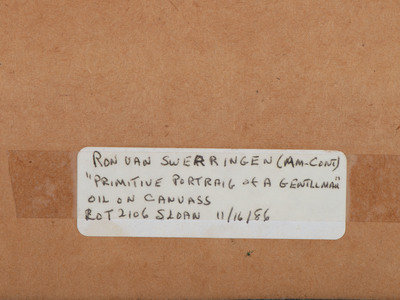 RON VAN SWEARINGEN (AM-CONT)
"PRIMITIVE PORTRAIG OF A GENTLLMAN"
OIL ON CANVASS
LOT 2106 SLOAN 11/16/86